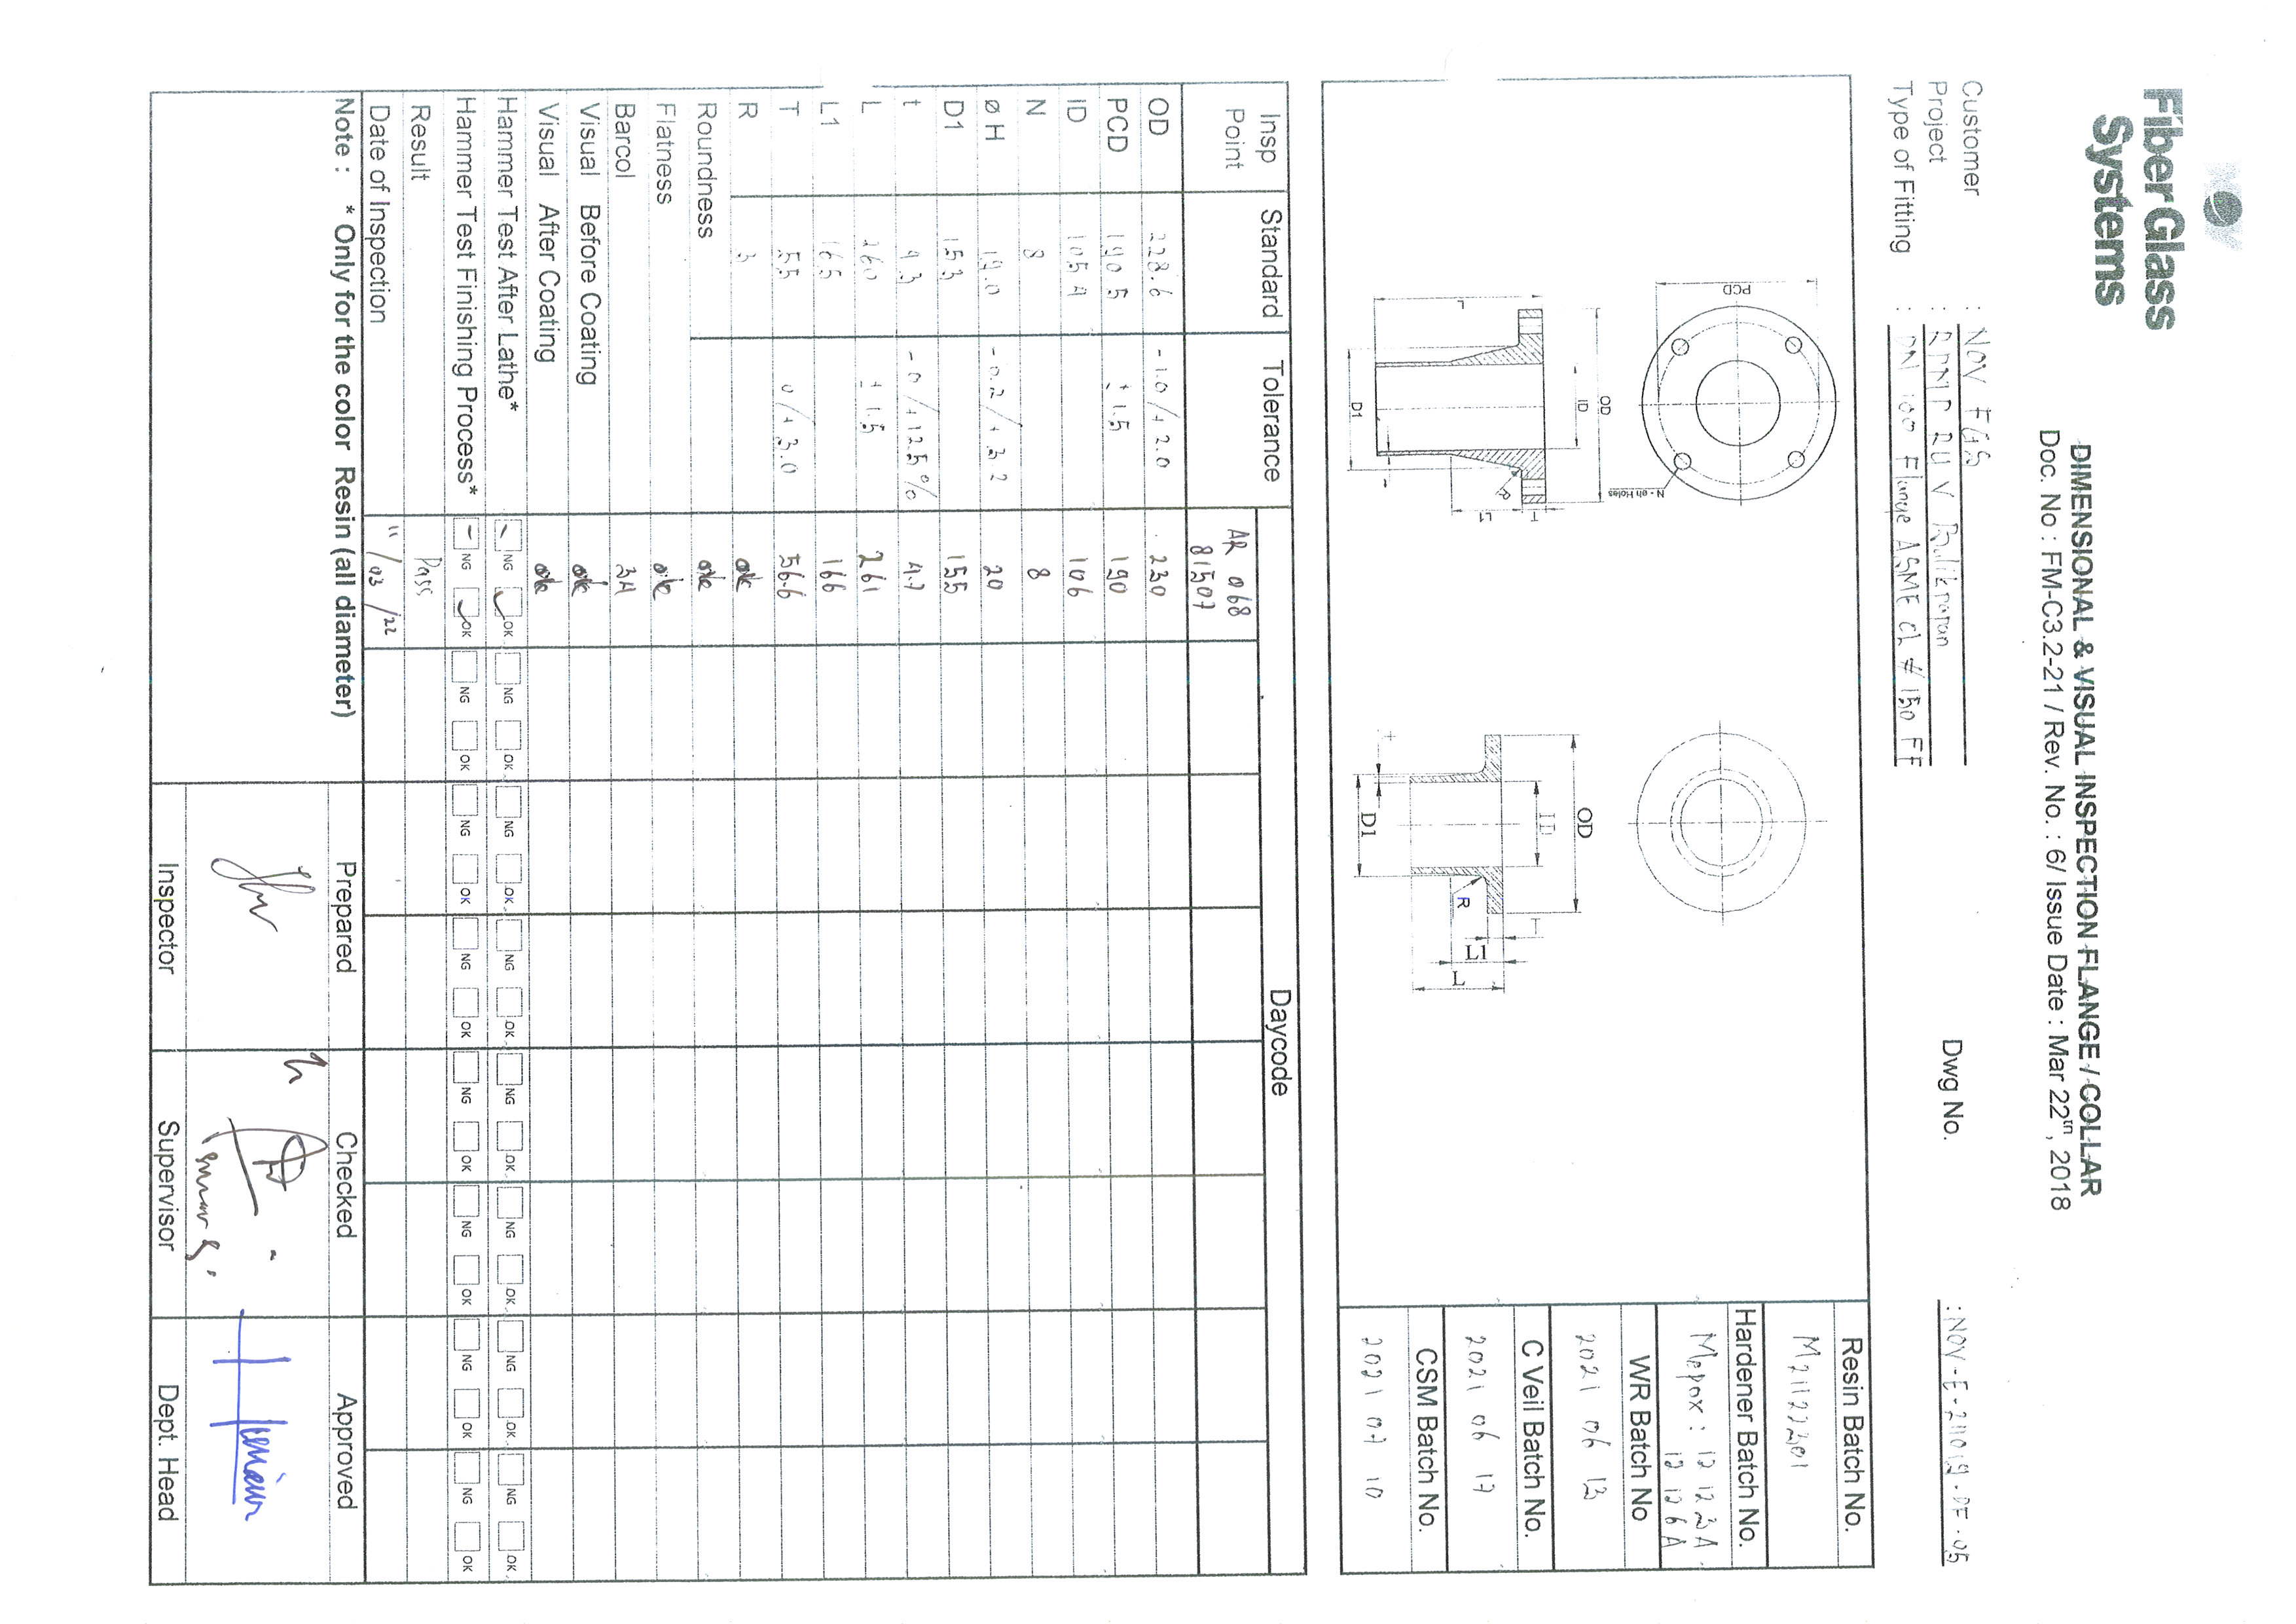 NOV
FiberGlass
Systems
DIMENSIONAL & VISUAL INSPECTION FLANGE / COLLAR
Doc. No : FM-C3.2-21 / Rev. No. : 6/ Issue Date : Mar 22th, 2018
Customer : NOV FGS
Project : RDMP RU V Balikpapan
Type of Fitting : DN 100 Flange ASME CL # 150 FF
Dwg No. : NOV-E-21019-DF-05
PCD
N - øh Holes
OD
ID
L
D1
R
T
L1
OD
ID
D1
R
T
L1
L
Resin Batch No.
M21122201
Hardener Batch No.
Mepox : 12 12 23 A
12 12 6 A
WR Batch No
2021 06 13
C Veil Batch No.
2021 06 17
CSM Batch No.
2021 07 10
Insp Point Standard Tolerance Daycode
AR 068
81507
OD 228.6 -1.0/+2.0 230
PCD 190.5 ± 1.5 190
ID 105.4 106
N 8 8
ø H 19.0 -0.2/+3.2 20
D1 153 155
t 4.3 -0/+12.5% 4.7
L 260 ± 1.5 261
L1 165 166
T 55 0/+3.0 56.6
R 3 ok
Roundness ok
Flatness ok
Barcol 34
Visual Before Coating ok
Visual After Coating ok
Hammer Test After Lathe* NG OK NG OK NG OK NG OK NG OK NG OK NG OK NG OK
Hammer Test Finishing Process* NG OK NG OK NG OK NG OK NG OK NG OK NG OK NG OK
Result Pass
Date of Inspection 11/03/22
Note : * Only for the color Resin (all diameter)
Prepared Checked Approved
Inspector Supervisor Dept. Head